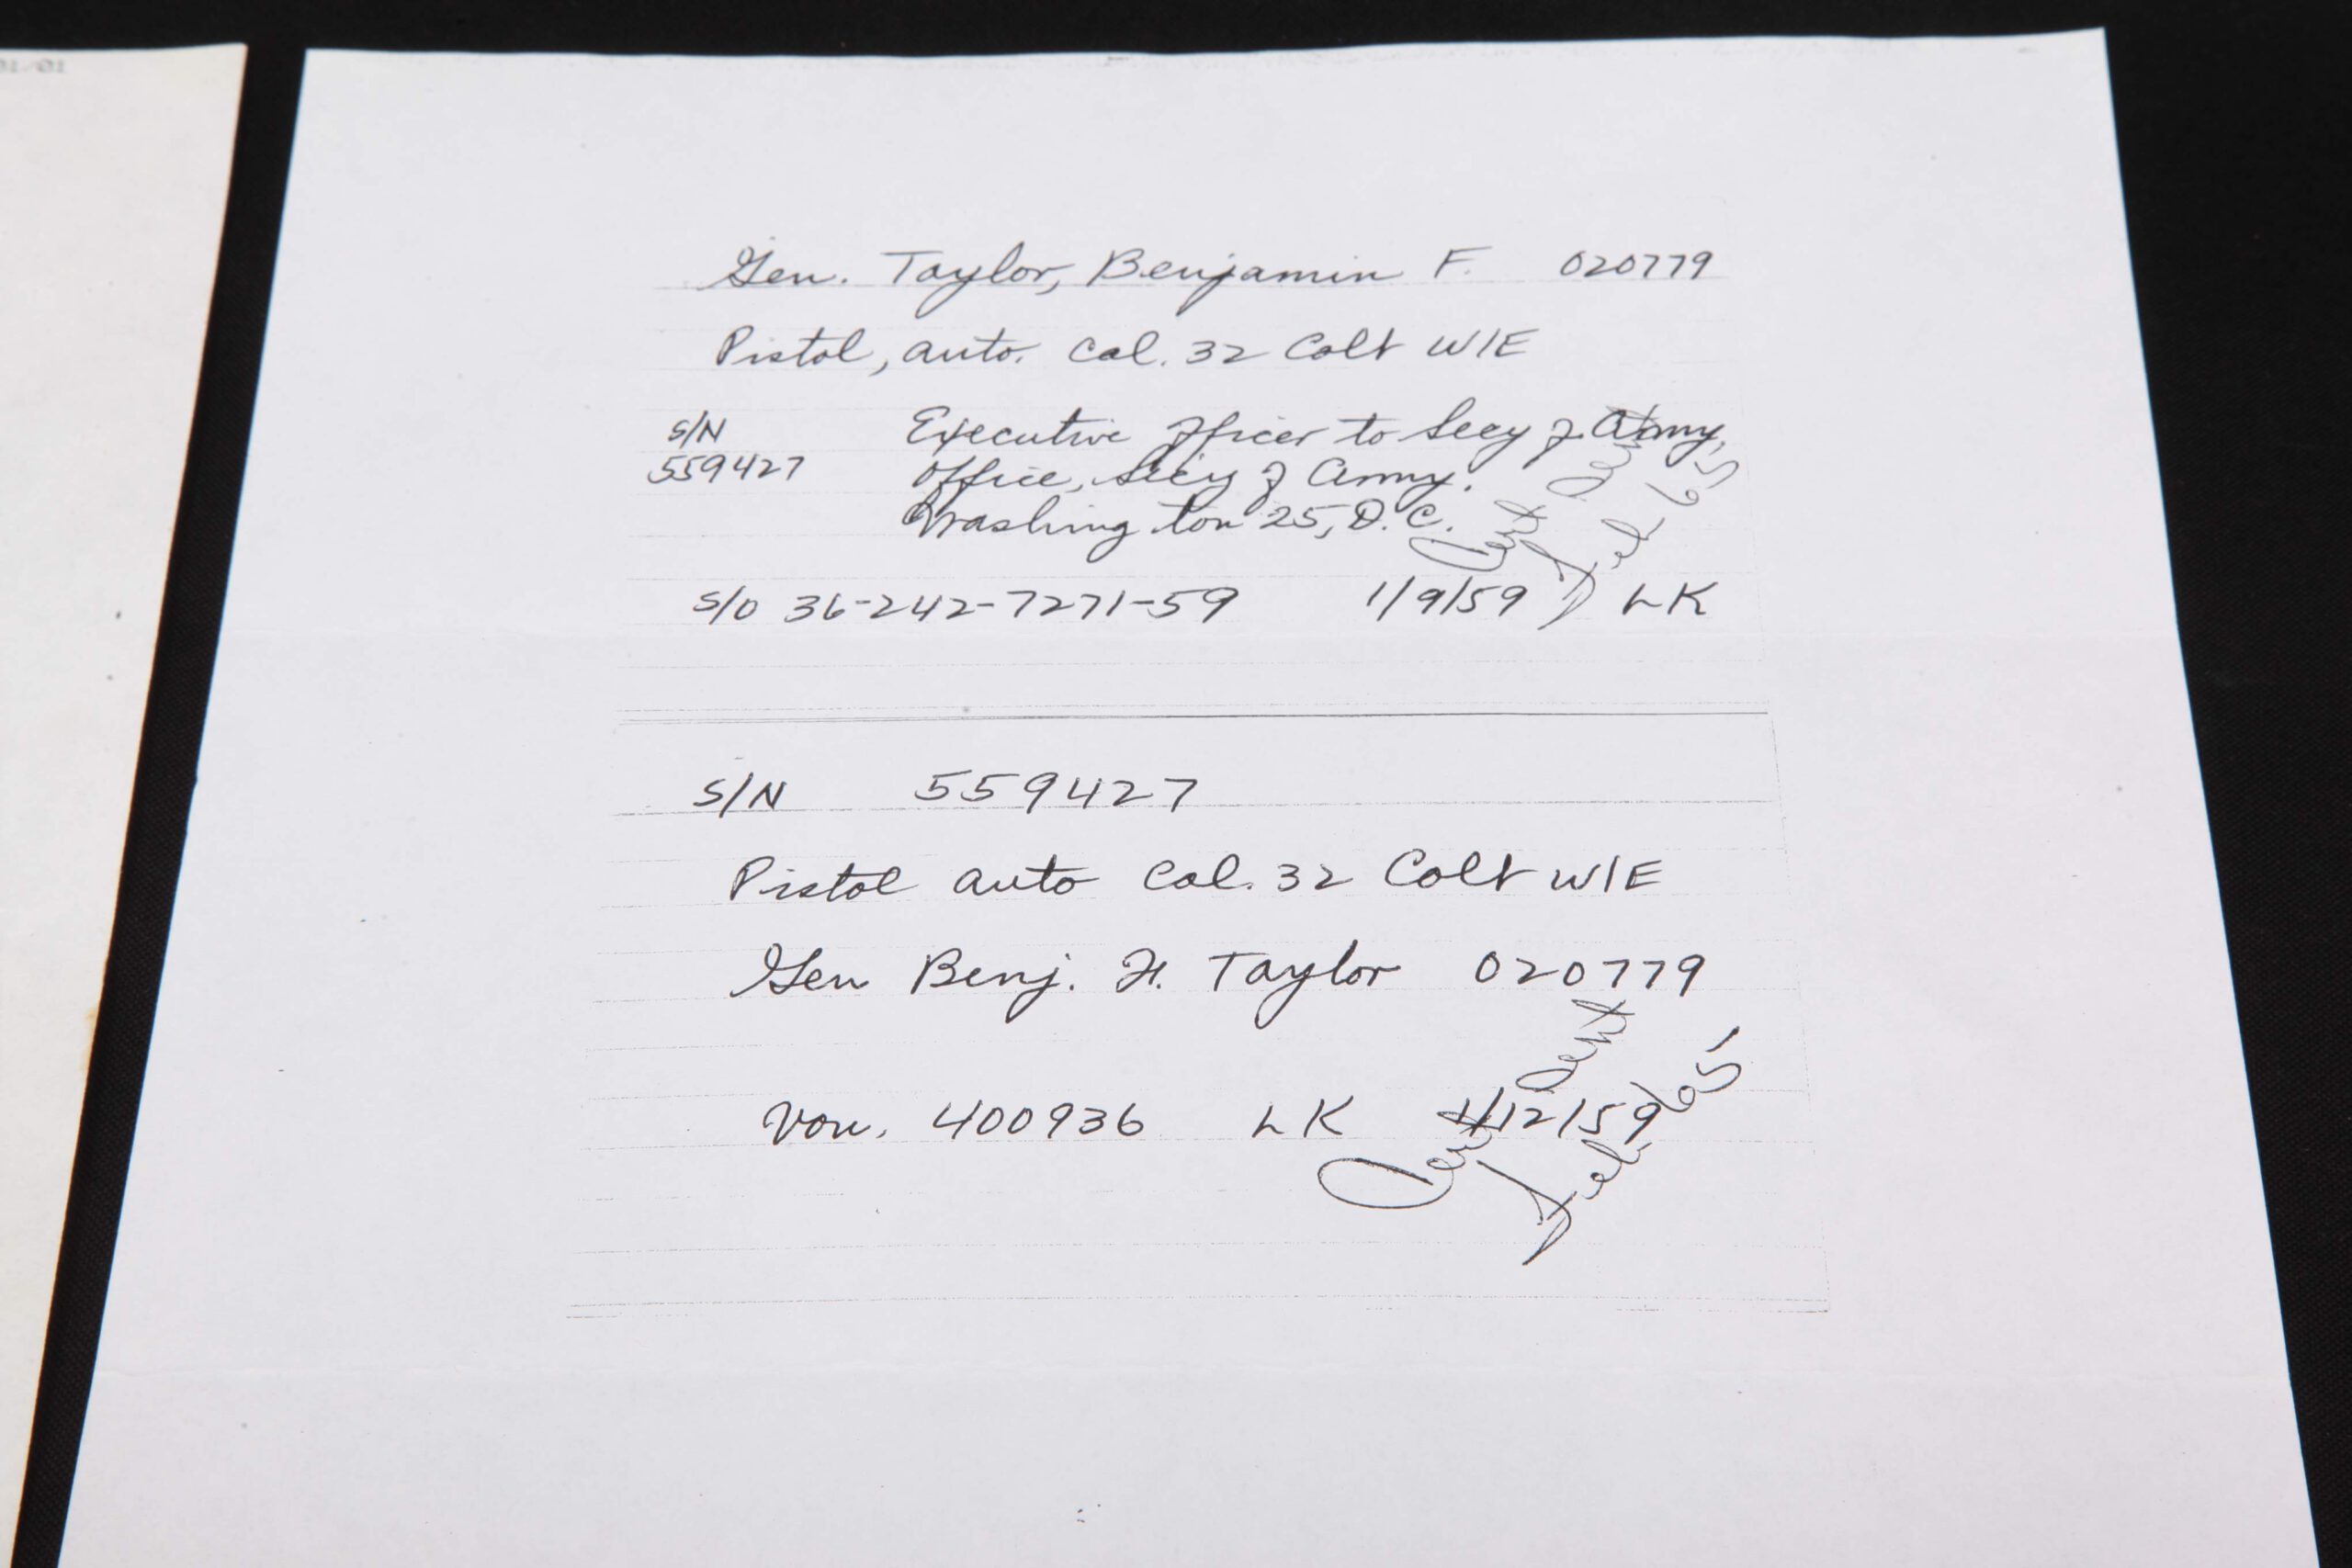 01/01
Gen. Taylor, Benjamin F. 020779
Pistol, auto. Cal. 32 Colt W/E
S/N
559427
Executive Officer to Secy of Army,
Office, Secy of Army.
Washington 25, D.C.
Cert Sent
Jul 65
S/O 36-242-7271-59 1/9/59 LK
S/N 559427
Pistol auto Cal. 32 Colt W/E
Gen Benj. F. Taylor 020779
Vou. 400936 LK 1/12/59
Cert Sent
Jul 65